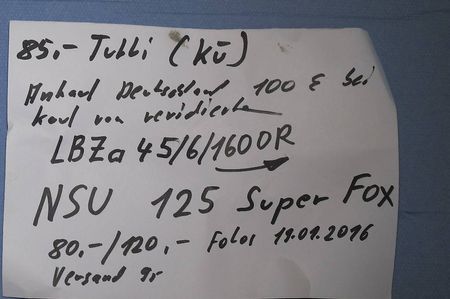 85,- Tutti (KÜ)
Ankauf Deutschland 100 € bei
kauf von revidierten
LBZa 45/6/1600R
NSU 125 Super Fox
80,-/120,- Fotos 19.01.2016
Versand 9,-